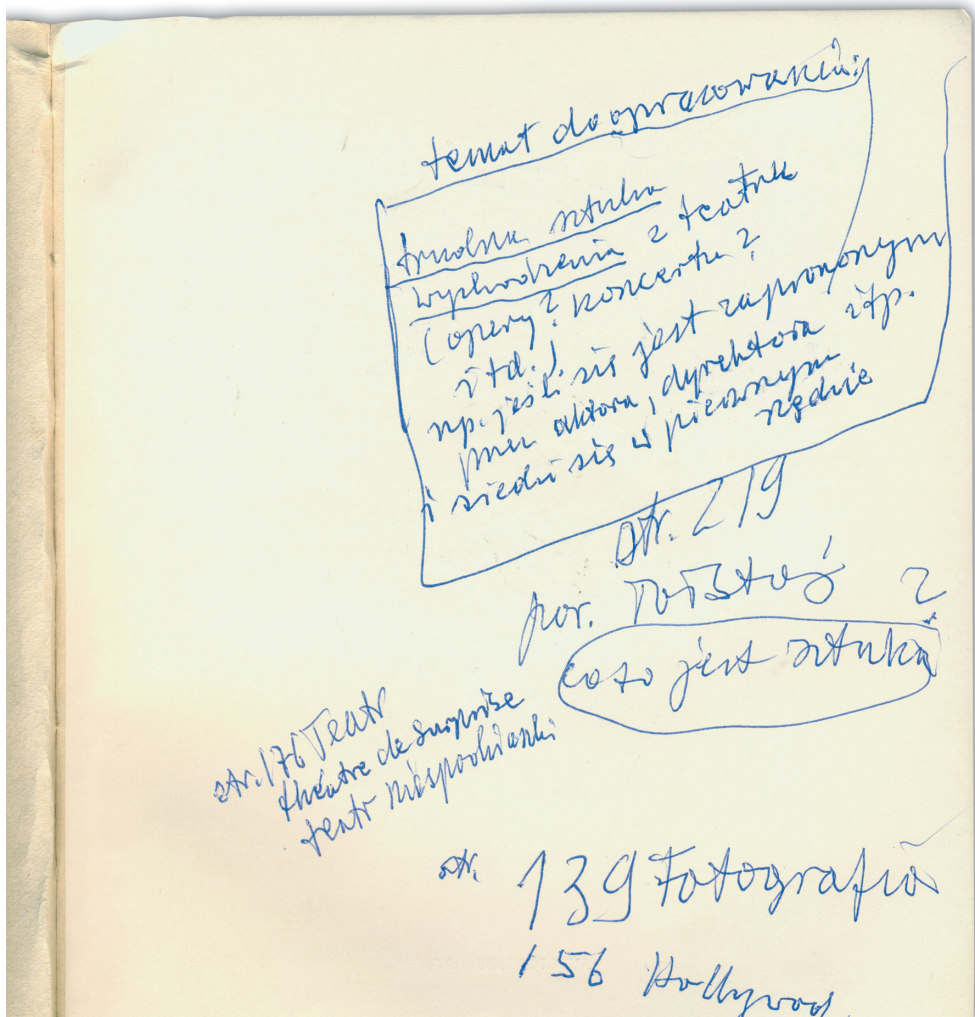 temat do opracowania:
trudna sztuka
wychodzenia z teatru
(opery? koncertu?
itd.)
np. jeśli się jest zaproszonym
przez aktora, dyrektora itp.
i siedzi się w pierwszym
rzędzie
str. 219
por. Tołstoj ?
co to jest sztuka
str. 176 Teatr
théatre de surprise
teatr niespodzianki
str. 139 Fotografia
156 Hollywood